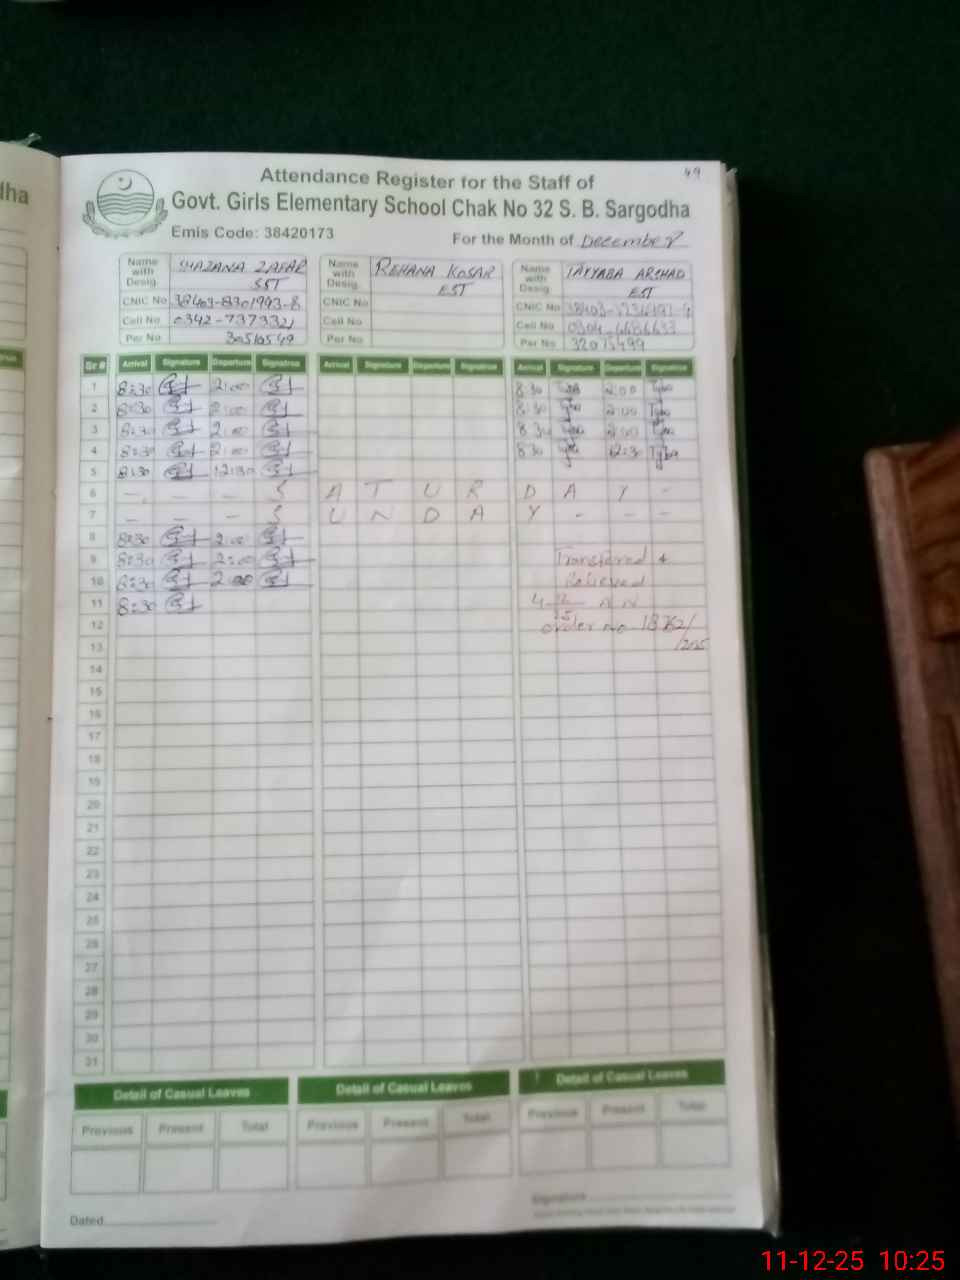 dha
49
Attendance Register for the Staff of
Govt. Girls Elementary School Chak No 32 S. B. Sargodha
Emis Code: 38420173
For the Month of December
Name with Desig. SHAZANA ZAFAR SST
CNIC No 38403-8301993-8
Cell No 0342-7373321
Per No 30510549
Name with Desig. REHANA KOSAR EST
CNIC No
Cell No
Per No
Name with Desig. TAYYABA ARSHAD EST
CNIC No 38403-
Cell No 0304-6686633
Per No 32075499
Sr # Arrival Signature Departure Signature Arrival Signature Departure Signature Arrival Signature Departure Signature
1 8:30 2:00 8:30 Tyba 2:00 Tyba
2 8:30 2:00 8:30 Tyba 2:00 Tyba
3 8:30 2:00 8:30 Tyba 2:00 Tyba
4 8:30 2:00 8:30 Tyba 12:30 Tyba
5 8:30 12:30
6 - - - S A T U R D A Y -
7 - - - S U N D A Y - - -
8 8:30 2:00
9 8:30 2:00 Transfered +
10 8:30 2:00 Relieved
11 8:30 4 12 25 A N
12 order no 18762/
13 /2025
14
15
16
17
18
19
20
21
22
23
24
25
26
27
28
29
30
31
Detail of Casual Leaves Detail of Casual Leaves Detail of Casual Leaves
Previous Present Total Previous Present Total Previous Present Total
Signature
Dated
11-12-25 10:25